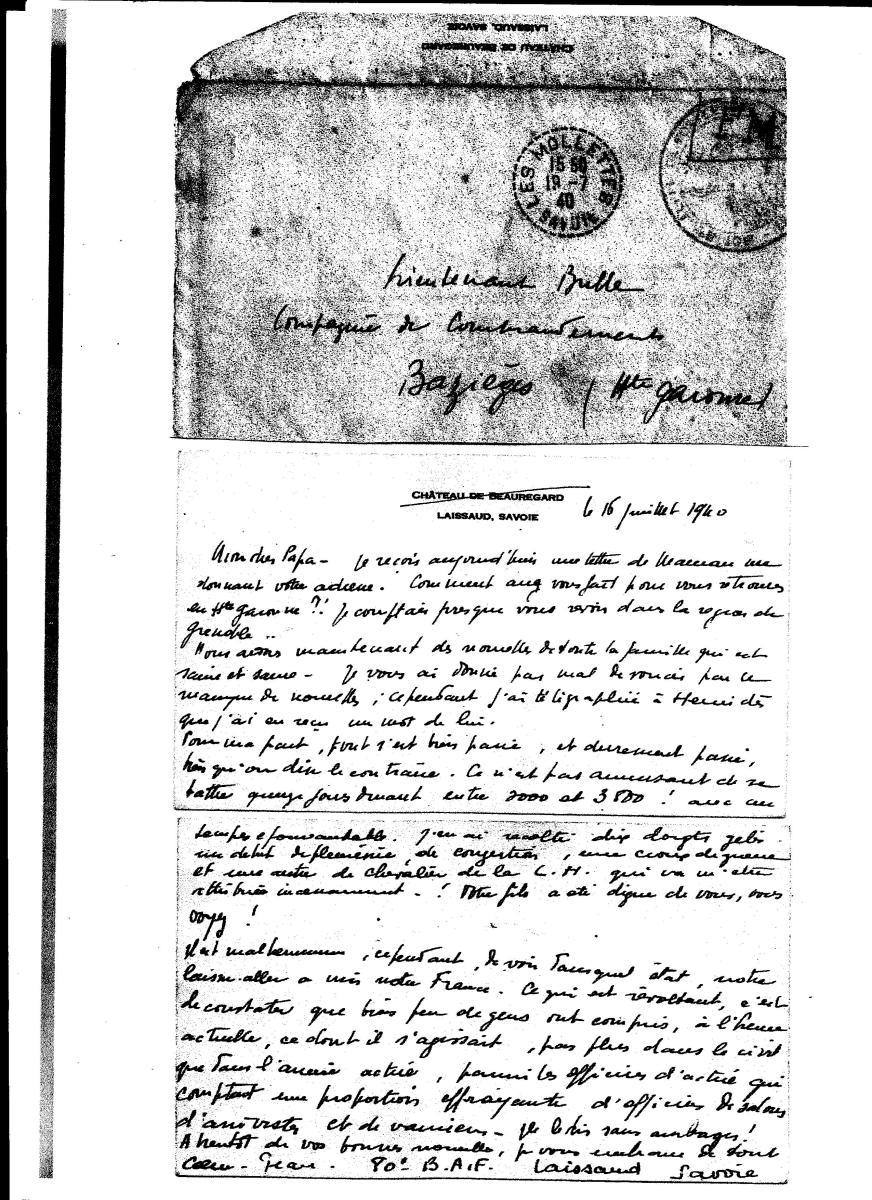 CHÂTEAU DE BEAUREGARD
LAISSAUD, SAVOIE
LES MOLLETTES
19 -7
40
SAVOIE
FM
Lieutenant Bulle
Compagnie de Commandements
Baziéges (Hte Garonne)
CHÂTEAU DE BEAUREGARD
LAISSAUD, SAVOIE
le 16 juillet 1940
Mon cher Papa - Je reçois aujourd'hui une lettre de Maman me
donnant votre adresse. Comment avez vous fait pour vous retrouver
en Hte Garonne ?! Je comptais presque vous revoir dans la region de
Grenoble ..
Nous avons maintenant des nouvelles de toute la famille qui est
saine et sauve - Je vous ai donné pas mal de soucis par ce
manque de nouvelles ; cependant j'ai télégraphié à Henri dès
que j'ai eu reçu un mot de lui.
Pour ma part, tout s'est bien passé, et durement passé,
bien qu'on dise le contraire. Ce n'est pas amusant de se
battre quinze jours durant entre 3000 et 3800 ! avec un
temps epouvantable. J'en ai récolté dix doigts gelés
un debut de pleurésie, de congestion, une croix de guerre
et une autre de chevalier de la L.H. qui va m'etre
incessamment - ! Votre fils a été digne de vous, vous
voyez !
Il est malheureux, cependant, de voir dans quel état, notre
laisser-aller a mis notre France. Ce qui est révoltant, c'est
de constater que bien peu de gens ont compris, à l'heure
actuelle, ce dont il s'agissait, pas plus dans le civil
que dans l'armée active, parmi les officiers d'active qui
comptent une proportion effrayante d'officiers de salons
d'arrivistes et de vauriens - je le dis sans ambages !
A bientot de vos bonnes nouvelles, je vous embrasse de tout
Cœur - Jean - 80e B.A.F. Laissaud Savoie